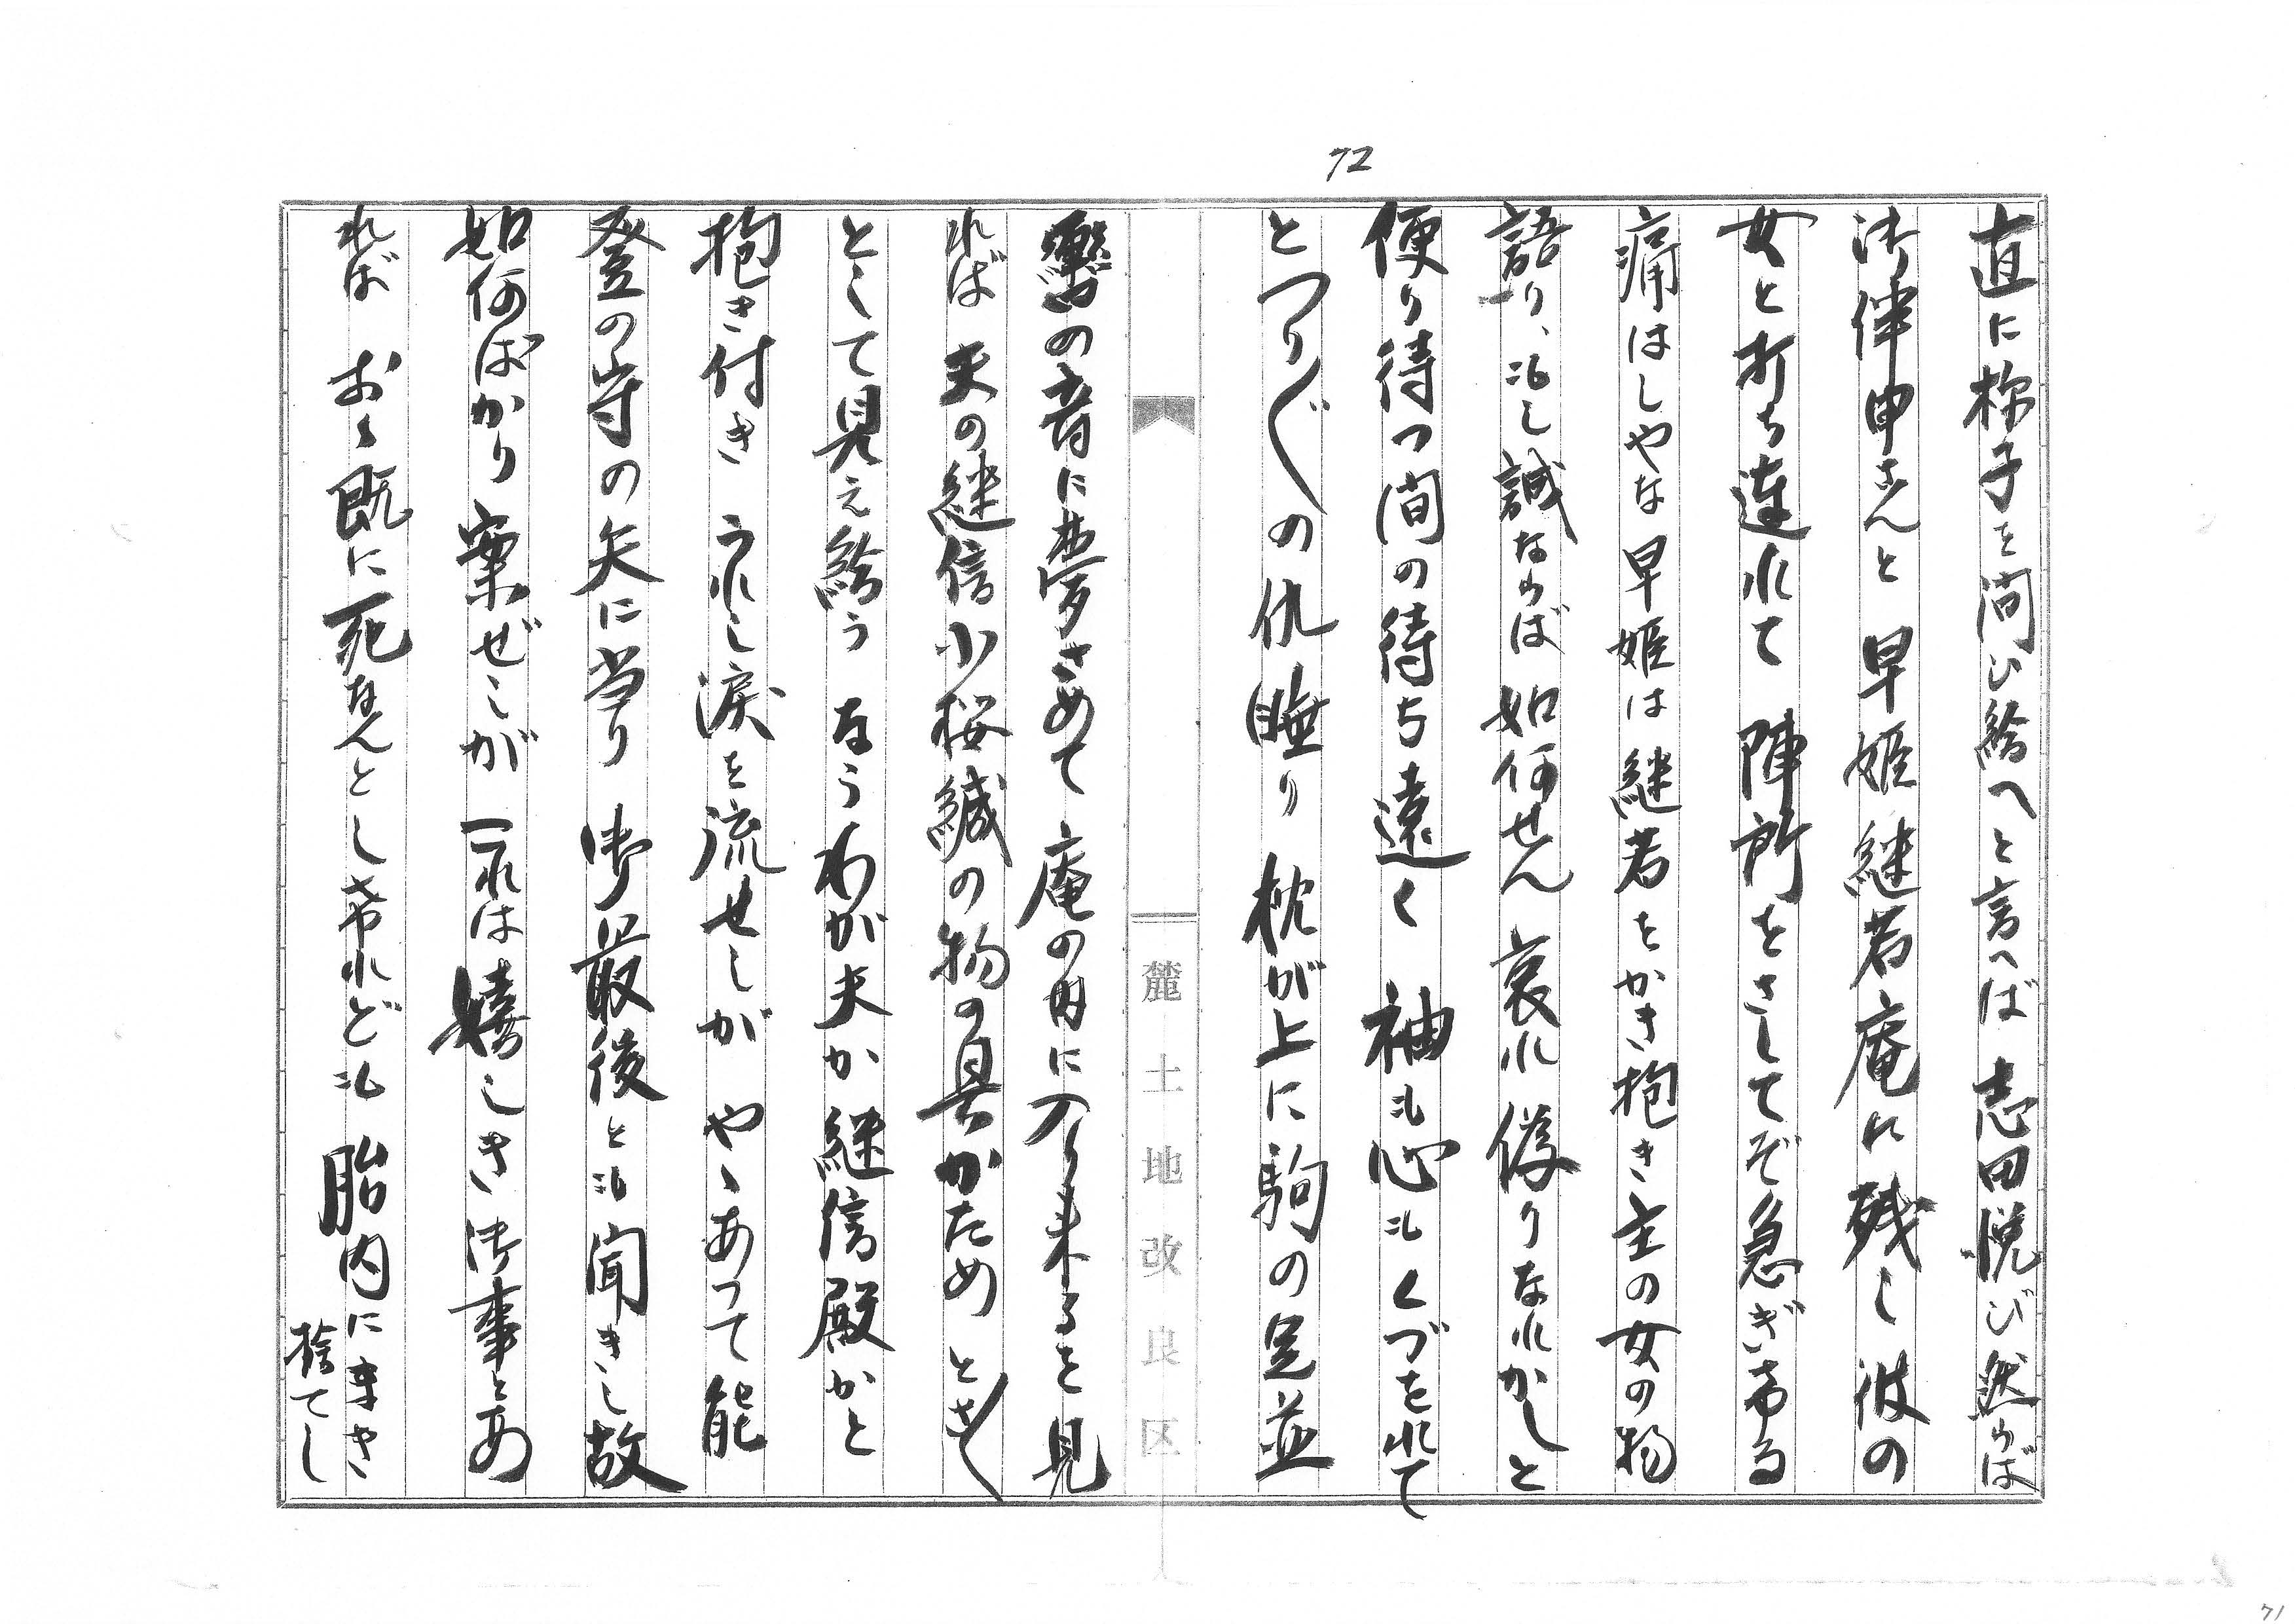 72
直に様子を問ひ給へと言へば 志田悦び然らば
御伴申さんと 早姫 継若庵に残し 彼の
女と打ち連れて 陣所をさしてぞ急ぎ帰る
痛はしやな 早姫は 継若をかき抱き 主の女の物
語り、もし誠ならば 如何せん 哀れ偽りなれかしと
便り待つ間の待ち遠く 袖も心もくづをれて
とつり〲の仇睡り 枕が上に駒の足並
轡の音に夢さめて 庵の内に入り来るを見
れば 夫の継信小桜縅の物の具かため とさ〱
として見え給う なうわが夫か 継信殿かと
抱き付き うれし涙を流せしが やゝあって能
登の守の矢に当り 御最後とも聞きし故
如何ばかり案ぜしが 一れは嬉しき御事とあ
れば おゝ既に死なんとし帰れども 胎内にまさ
捨てし
麓土地改良区
71